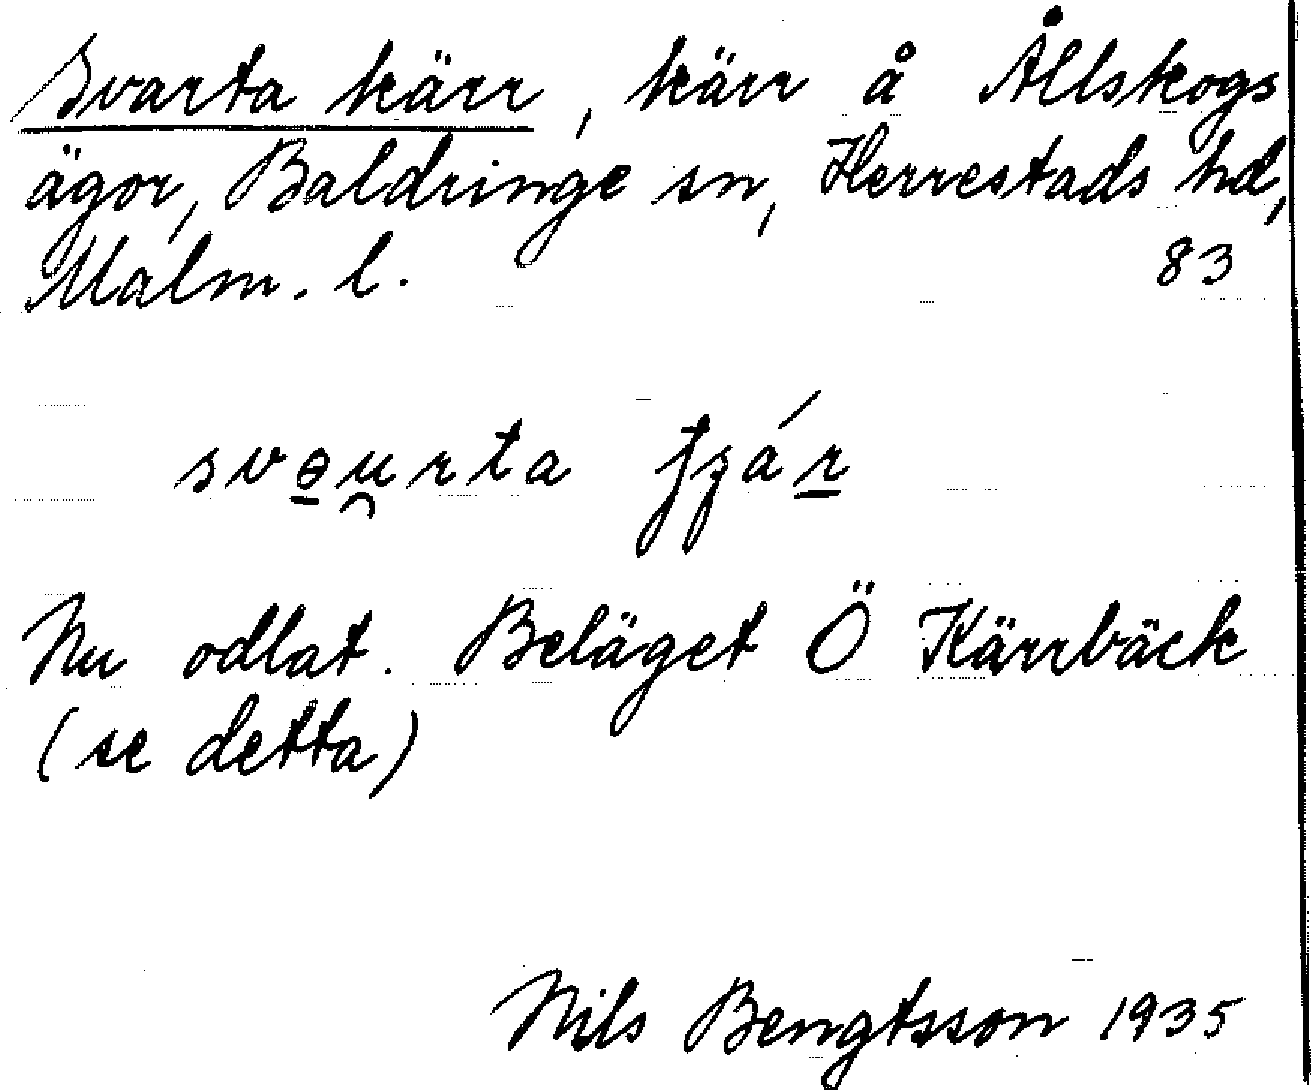 Svarta kärr, kärr å Ållskogs
ägor, Baldringe sn, Herrestads hd,
Malm. l. 83
svɵu̯rta
Nu odlat. Beläget Ö Kärrbäck
(se detta)
Nils Bengtsson 1935